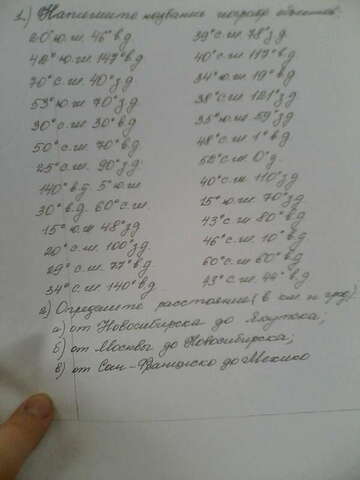 1.) Напишите название географ объектов:
20° ю.ш. 46° в.д.
42° ю.ш. 147° в.д.
70° с.ш. 40° з.д.
53° ю.ш. 70° з.д.
30° с.ш. 30° в.д.
50° с.ш. 70° в.д.
25° с.ш. 90° з.д.
140° в.д. 5° ю.ш.
30° в.д. 60° с.ш.
15° ю.ш. 48° з.д.
20° с.ш. 100° з.д.
29° с.ш. 77° в.д.
34° с.ш. 140° в.д.
39° с.ш. 78° з.д.
40° с.ш. 117° в.д.
34° ю.ш. 19° в.д.
38° с.ш. 121° з.д.
35° ю.ш. 59° з.д.
48° с.ш. 1° в.д.
52° с.ш. 0° д.
40° с.ш. 110° з.д.
15° ю.ш. 70° з.д.
43° с.ш. 80° в.д.
46° с.ш. 10° в.д.
60° с.ш. 60° в.д.
43° с.ш. 44° в.д.
2) Определите расстояние (в км. и град.)
а) от Новосибирска до Якутска;
б) от Москвы до Новосибирска;
в) от Сан-Франциско до Мехико